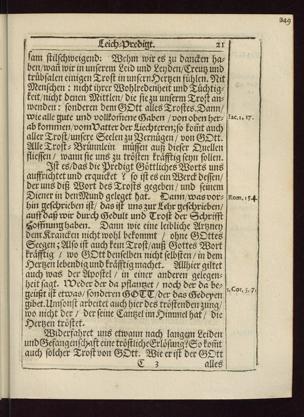 249
Leich-Predigt. 21
sam stilschweigend: Wehm wir es zu dancken ha-
ben/ wañ wir in unserem Leid und Leyden/ Creutz und
trübsalen einigen Trost in unsern Hertzen fühlen. Nit
Menschen: nicht ihrer Wohlredenheit und Tüchtig-
keit/ nicht denen Mittlen/ die sie zu unserm Trost an-
wenden: sonderen dem GOtt alles Trostes. Dann/
wie alle gute und vollkom̃ene Gaben/ von oben her-
ab kommen/ vom Vatter der Liechteren; so kom̃t auch
aller Trost/ unsere Seelen zu Vernügen/ von GOtt.
Alle Trost-Brünnlein müssen auß dieser Quellen
fliessen/ wann sie uns zu trösten kräfftig seyn sollen.
Jac. 1, 17.
Ist es/ das die Predigt Göttliches Worts uns
auffrichtet und erquicket? so ist es ein Werck dessen/
der uns diß Wort des Trosts gegeben/ und seinem
Diener in den Mund geleget hat. Dann, was vor-
hin geschrieben ist/ das ist uns zur Lehr geschrieben/
auff daß wir durch Gedult und Trost der Schrifft
Hoffnung haben. Dann wie eine liebliche Artznen
dem Krancken nicht wohl bekommt/ ohne GOttes
Seegen; Also ist auch kein Trost/ auß Gottes Wort
kräfftig/ wo GOtt denselben nicht selbsten/ in dem
Hertzen lebendig und kräfftig machet. Allhier giltet
auch was der Apostel/ in einer anderen gelegen-
heit sagt. Weder der da pflantzet/ noch der da be-
geüßt ist etwas/ sonderen GOTT/ der das Gedeyen
gibet. Umsonst arbeitet auch hier des tröstenden zung/
wo nicht der/ der seine Cantzel im Himmel hat/ die
Hertzen tröstet.
Rom. 15. 4.
1. Cor. 3. 7.
Widerfahret uns etwann nach langen Leiden
und Gefangenschaft eine tröstliche Erlösung? So kom̃t
auch solcher Trost von GOtt. Wie er ist der GOtt
C 3 alles